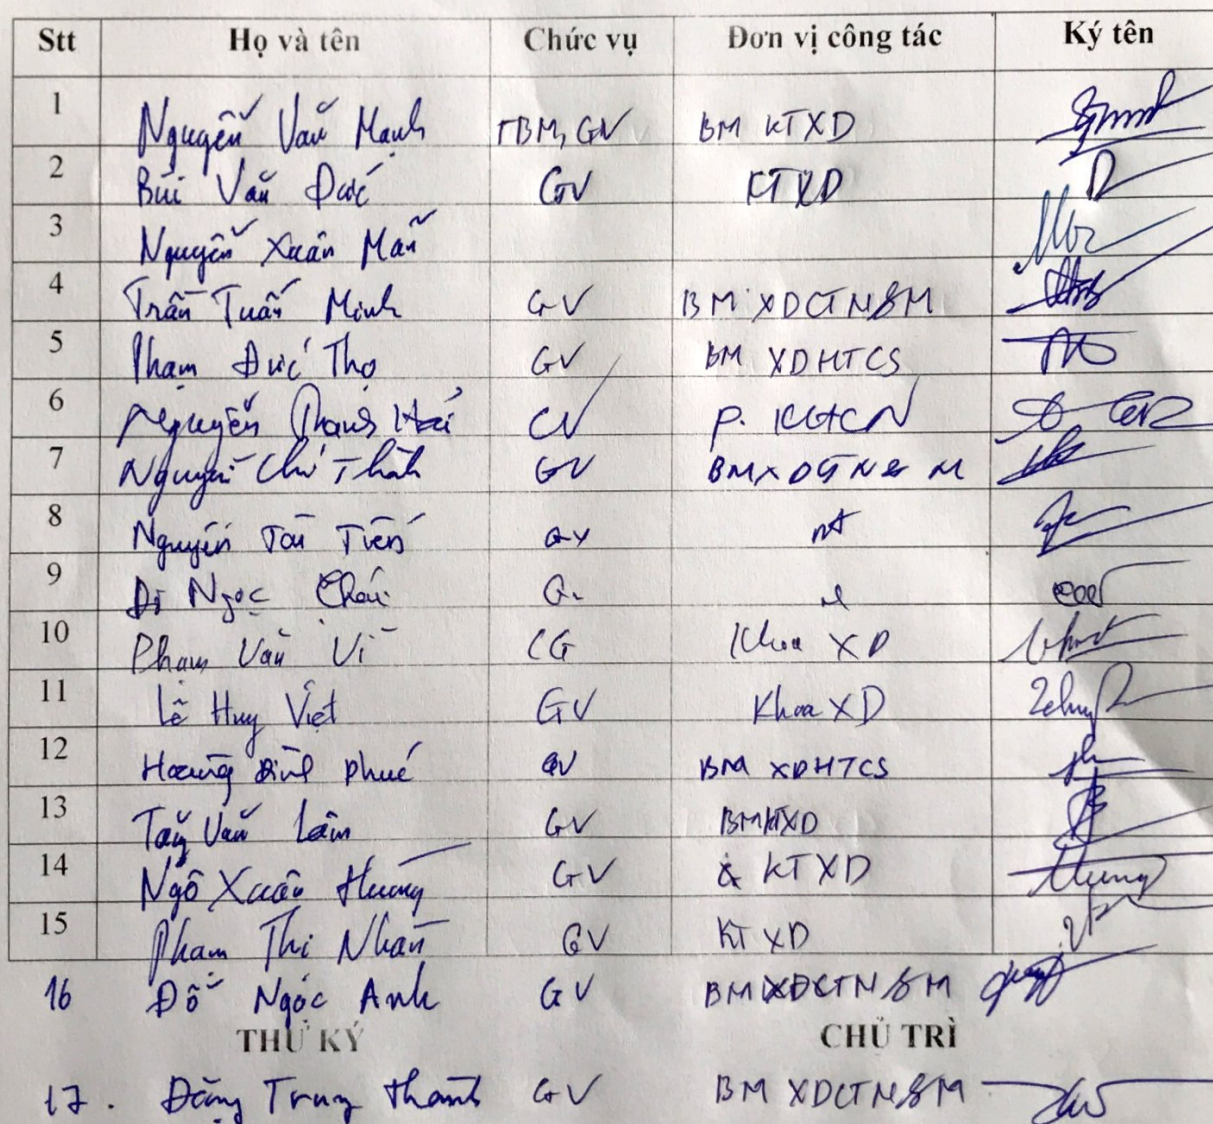 Stt Họ và tên Chức vụ Đơn vị công tác Ký tên
1 Nguyễn Văn Mạnh TBM, GV BM KTXD
2 Bùi Văn Đức GV KTXD
3 Nguyễn Xuân Mãn
4 Trần Tuấn Minh GV BM XDCTN&M
5 Phạm Đức Thọ GV BM XDHTCS
6 Nguyễn CV P.
7 Nguyễn Chí Thành GV BMXDCTN& M
8 Nguyễn Tài Tiến GV nt
9 Ngọc
10 Phạm Văn Vĩ CG Khoa XD
11 Lê Huy Việt GV Khoa XD
12 Hoàng Đình Phúc GV BM XDHTCS
13 Tăng Văn Lâm GV BMKTXD
14 Ngô Xuân Hùng GV KTXD
15 Phạm Thị Nhàn GV KTXD
16 Đỗ Ngọc Anh GV BMXDCTN&M
THƯ KÝ CHỦ TRÌ
17. Đặng Trung Thành GV BM XDCTN&M